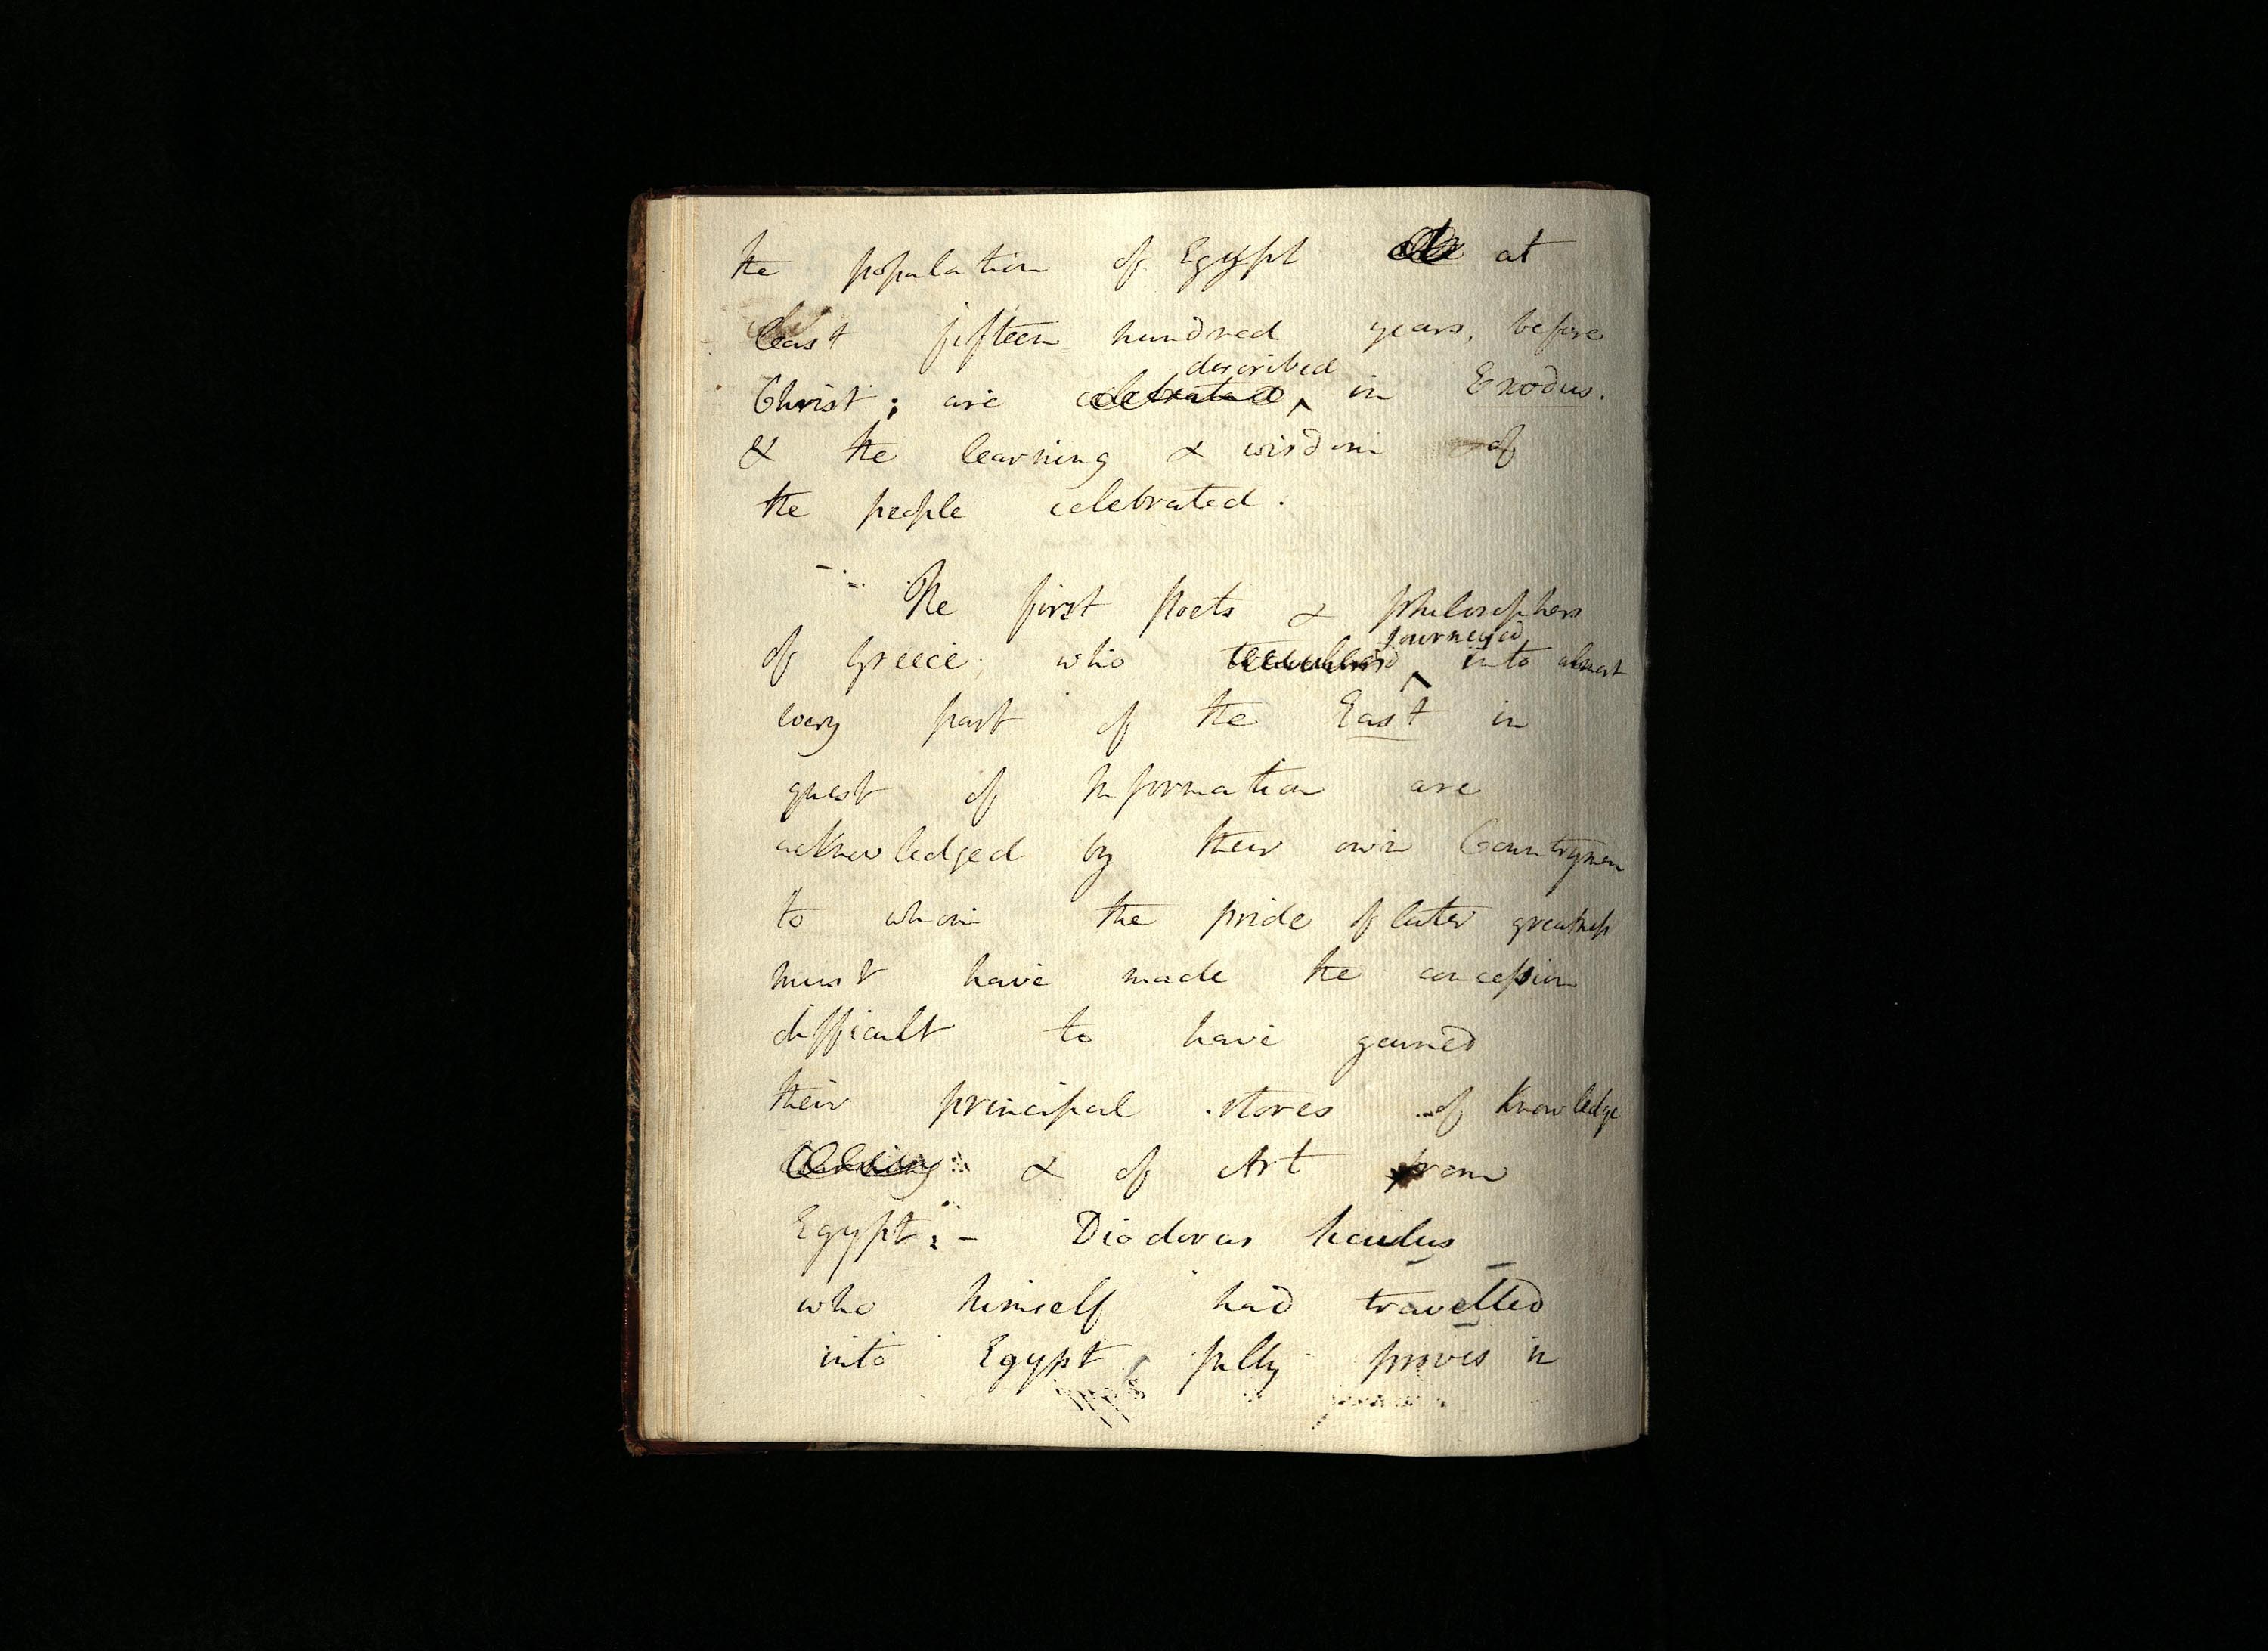 the population of Egypt at
least fifteen hundred years, before
Christ; are celebrated described in Exodus.
& the learning & wisdom of
the people celebrated.
The first Poets & philosophers
of Greece; who travelled journeyed into almost
every part of the East in
quest of Information are
acknowledged by their own Countrymen
to whom the pride of later greatness
must have made the concession
difficult to have gained
their principal stores of Knowledge
& of Art from
Egypt: - Diodorus Siculus
who himself had travelled
into Egypt, fully proves in